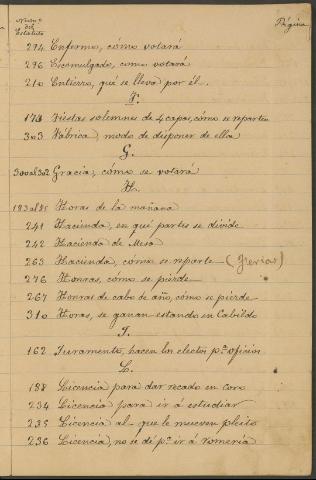 Numº del Estatuto
Página
274 Enfermo, cómo votará
276 Escomulgado, como votará
210 Entierro, qué se lleva por él
F.
173 Fiestas solemnes de 4 capas, cómo se reparten
303 Fábrica, modo de disponer de ella
G.
300 al 302 Gracia, cómo se votará
H.
183 al 85 Horas de la mañana
241 Hacienda, en qué partes se divide
242 Hacienda de Mesa
263 Hacienda, cómo se reparte (Grevias)
276 Honras, cómo se pierde
267 Honras de cabo de año, cómo se pierde
310 Horas, se ganan estando en Cabildo
J.
162 Juramento, hacen los electos pª oficios
L.
188 Licencia para dar recado en coro
234 Licencia para ir á estudiar
235 Licencia al que le mueven pleito
236 Licencia, no se dé pª ir á romería